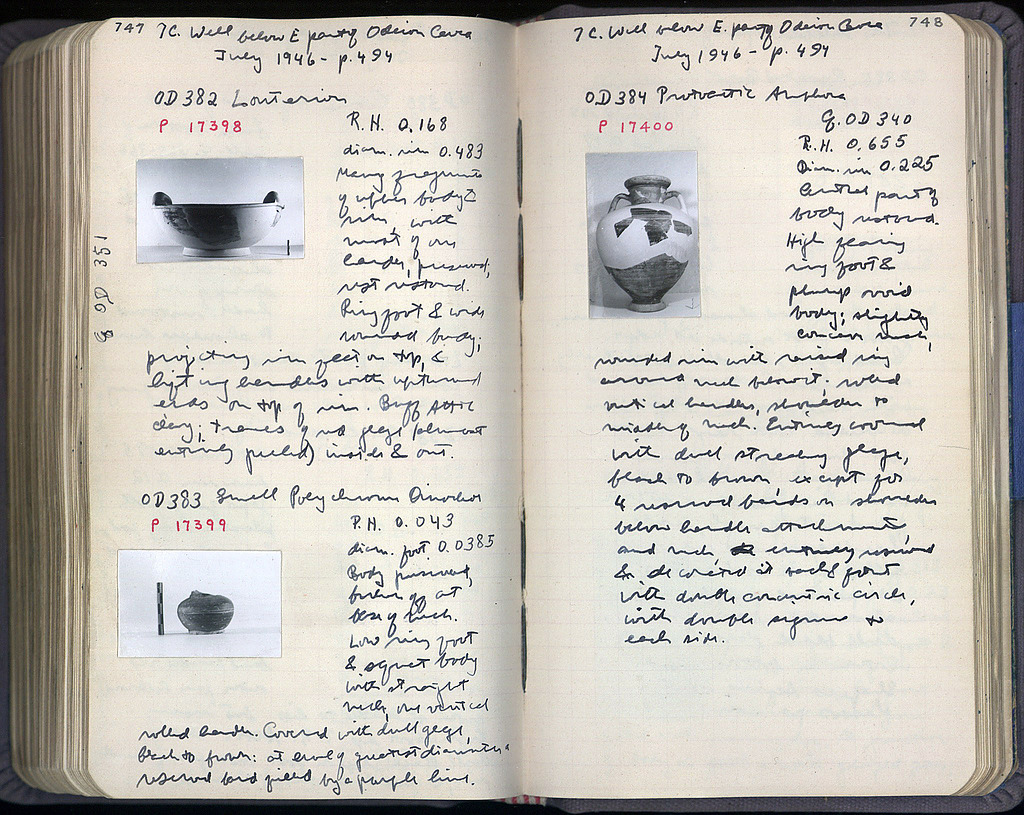 747 7C. Well below E part of Odeion Cavea
July 1946 - p. 494
OD 382 Louterion
P 17398
P.H. 0.168
diam. rim 0.483
Many fragments
of upper body &
rim, with
most of one
handle, preserved,
rest restored.
Ring foot & wide
rounded body;
projecting rim flat on top, &
lug handles with upturned
ends on top of rim. Buff Attic
clay; traces of red glaze (almost
entirely peeled) inside & out.
& OD 351
OD383 Small Polychrome Oinochoe
P 17399
P.H. 0.043
diam. foot 0.0385
Body preserved,
broken off at
base of neck.
Low ring foot
& squat body
with straight
neck, one vertical
rolled handle. Covered with dull glaze,
black to brown: at level of greatest diameter a
reserved band by a purple line.
748
7C. Well below E. part of Odeion Cavea
July 1946 - p. 494
OD384 Protoattic Amphora
P 17400
Cf. OD 340
P.H. 0.655
Diam. rim 0.225
Central part of
body restored.
High flaring
ring foot &
plump ovoid
body; slightly
concave neck,
rounded rim with raised ring
around neck below it. rolled
vertical handles, shoulder to
middle of neck. Entirely covered
with dull streaky glaze,
black to brown except for
4 reserved bands on shoulder
below handle attachments
and neck entirely reserved
& decorated at front
with double concentric circle,
with double sigma to
each side.